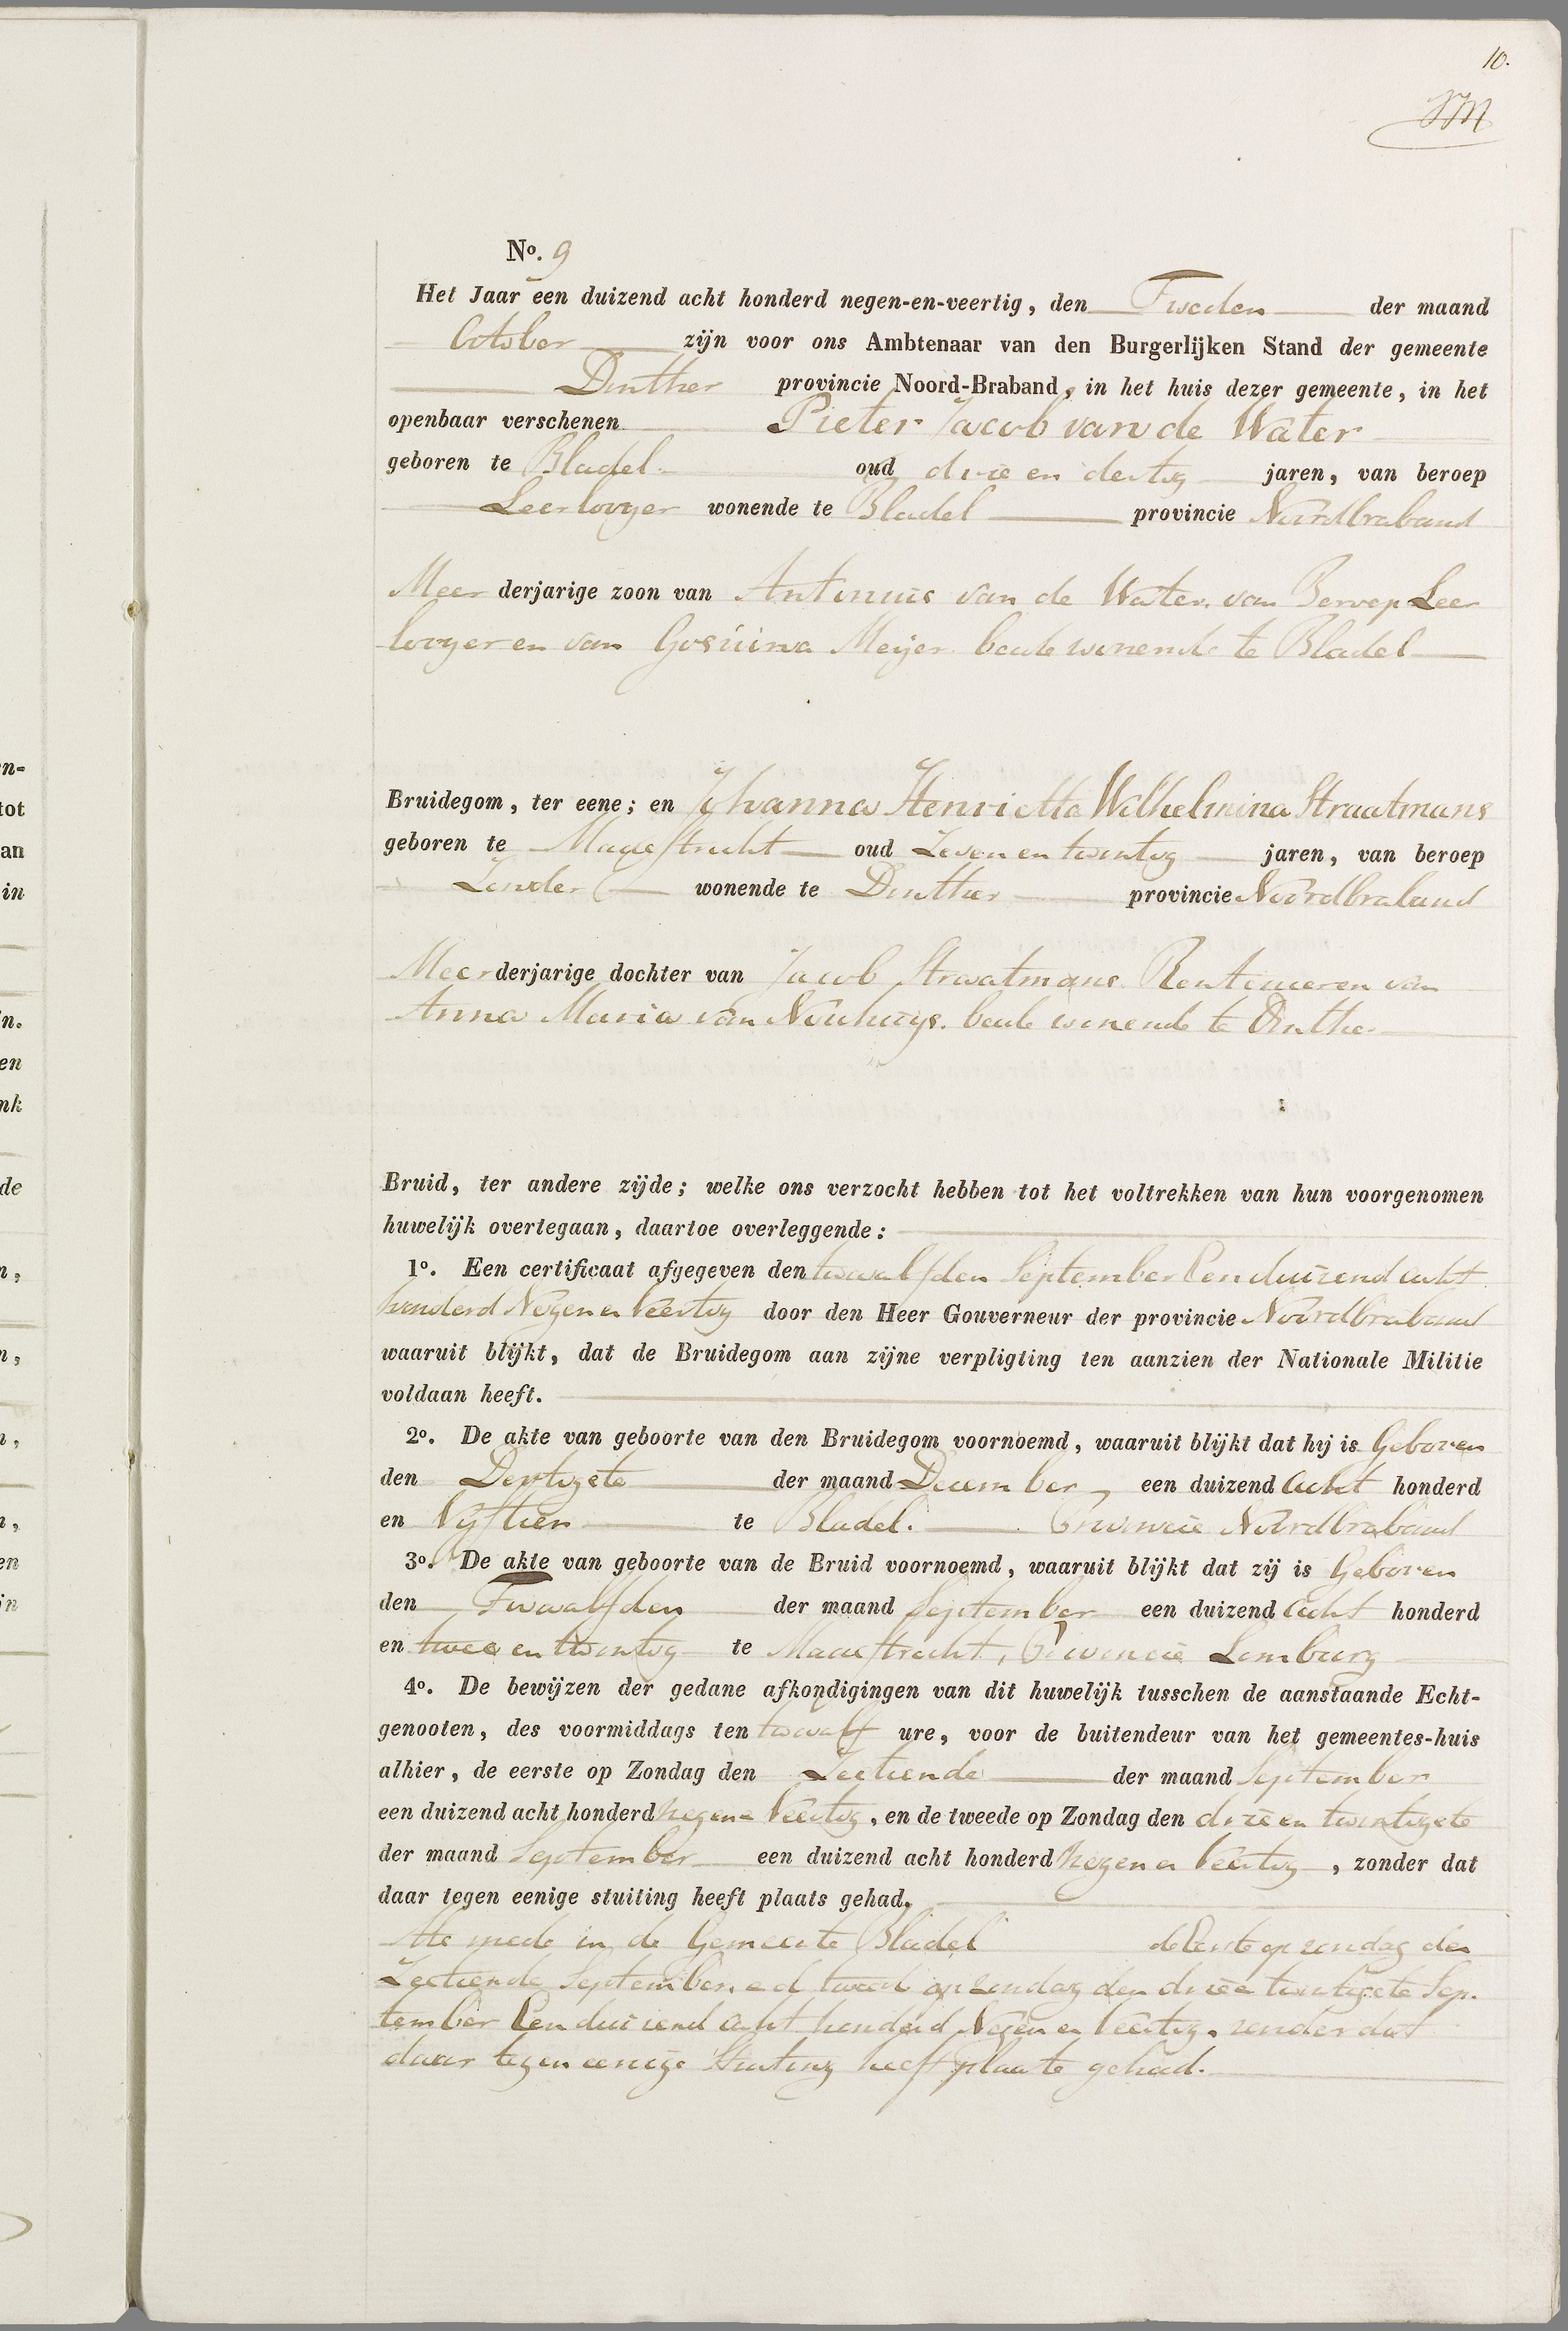 10.
JM
No. 9
Het Jaar een duizend acht honderd negen-en-veertig, den Tweeden der maand
October zijn voor ons Ambtenaar van den Burgerlijken Stand der gemeente
Dinther provincie Noord-Braband, in het huis dezer gemeente, in het
openbaar verschenen Pieter Jacob van de Water
geboren te Bladel oud drie en dertig jaren, van beroep
Leerlooyer wonende te Bladel provincie Noordbraband
Meer derjarige zoon van Antonius van de Water. van Beroep Leer
looyer en van Gosúina Meijer beide wonende te Bladel
Bruidegom, ter eene; en Johanna Henrietta Wilhelmina Straatmans
geboren te Maastricht oud Zeven en twintig jaren, van beroep
Zonder wonende te Dinther provincie Noordbraband
Meer derjarige dochter van Jacob Straatmans Rentenier en van
Anna Maria van Nouhuys. beide wonende te Dinther
Bruid, ter andere zijde; welke ons verzocht hebben tot het voltrekken van hun voorgenomen
huwelijk overtegaan, daartoe overleggende:
1o. Een certificaat afgegeven den twaalfden September Eenduizend acht
honderd Negen en Veertig door den Heer Gouverneur der provincie Noordbraband
waaruit blijkt, dat de Bruidegom aan zijne verpligting ten aanzien der Nationale Militie
voldaan heeft.
2o. De akte van geboorte van den Bruidegom voornoemd, waaruit blijkt dat hij is Geboren
den Dertigste der maand December een duizend acht honderd
en Vijftien te Bladel. Provincie Noordbraband
3o. De akte van geboorte van de Bruid voornoemd, waaruit blijkt dat zij is Geboren
den Twaalfden der maand September een duizend acht honderd
en twee en twintig te Maastricht, Provincie Limburg
4o. De bewijzen der gedane afkondigingen van dit huwelijk tusschen de aanstaande Echt-
genooten, des voormiddags ten twaalf ure, voor de buitendeur van het gemeentes-huis
alhier, de eerste op Zondag den Zestiende der maand September
een duizend acht honderd negen e Veertig, en de tweede op Zondag den drie en twintigste
der maand September een duizend acht honderd negen en Veertig, zonder dat
daar tegen eenige stuiting heeft plaats gehad.
Als mede in de Gemeente Bladel de Eerste op zondag den
Zestiende September. e d tweede op zondag den drie e twintigste Sep.
tember Eenduizend acht honderd Negen en Veertig. zonder dat
daar tegen eenige Stuiting heeft plaats gehad.
n-
tot
an
in
n.
en
nk
de
n,
n,
n,
n,
en
in